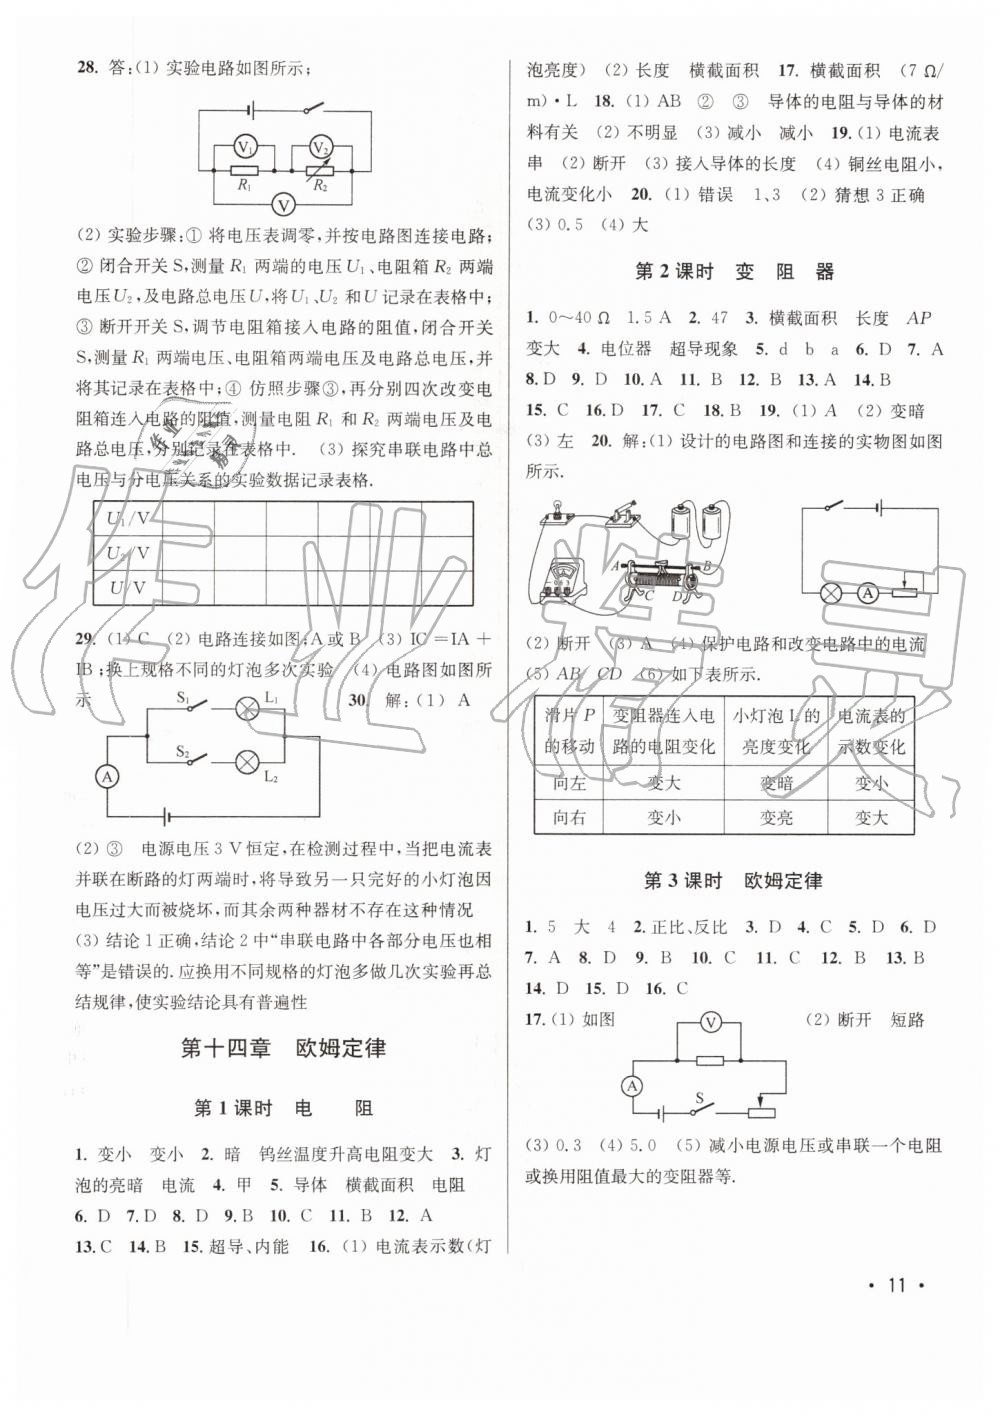 28. 答:(1) 实验电路如图所示;
V₁
V₂
R₁
R₂
V
(2) 实验步骤:① 将电压表调零,并按电路图连接电路;
② 闭合开关 S,测量 R₁ 两端的电压 U₁、电阻箱 R₂ 两端
电压 U₂,及电路总电压 U,将 U₁、U₂ 和 U 记录在表格中;
③ 断开开关 S,调节电阻箱接入电路的阻值,闭合开关
S,测量 R₁ 两端电压、电阻箱两端电压及电路总电压,并
将其记录在表格中;④ 仿照步骤③,再分别四次改变电
阻箱连入电路的阻值,测量电阻 R₁ 和 R₂ 两端电压及电
路总电压,分别记录在表格中. (3) 探究串联电路中总
电压与分电压关系的实验数据记录表格.
U₁/V
U₂/V
U/V
29. (1) C (2) 电路连接如图;A 或 B (3) IC=IA+
IB;换上规格不同的灯泡多次实验 (4) 电路图如图所
示 30. 解:(1) A
S₁
L₁
S₂
L₂
A
(2) ③ 电源电压 3 V 恒定,在检测过程中,当把电流表
并联在断路的灯两端时,将导致另一只完好的小灯泡因
电压过大而被烧坏,而其余两种器材不存在这种情况
(3) 结论 1 正确,结论 2 中“串联电路中各部分电压也相
等”是错误的.应换用不同规格的灯泡多做几次实验再总
结规律,使实验结论具有普遍性
第十四章 欧姆定律
第 1 课时 电 阻
1. 变小 变小 2. 暗 钨丝温度升高电阻变大 3. 灯
泡的亮暗 电流 4. 甲 5. 导体 横截面积 电阻
6. D 7. D 8. D 9. B 10. C 11. B 12. A
13. C 14. B 15. 超导、内能 16. (1) 电流表示数(灯
泡亮度) (2) 长度 横截面积 17. 横截面积 (7 Ω/
m)·L 18. (1) AB ② ③ 导体的电阻与导体的材
料有关 (2) 不明显 (3) 减小 减小 19. (1) 电流表
串 (2) 断开 (3) 接入导体的长度 (4) 铜丝电阻小,
电流变化小 20. (1) 错误 1、3 (2) 猜想 3 正确
(3) 0.5 (4) 大
第 2 课时 变 阻 器
1. 0~40 Ω 1.5 A 2. 47 3. 横截面积 长度 AP
变大 4. 电位器 超导现象 5. d b a 6. D 7. A
8. D 9. D 10. A 11. B 12. B 13. A 14. B
15. C 16. D 17. C 18. B 19. (1) A (2) 变暗
(3) 左 20. 解:(1) 设计的电路图和连接的实物图如图
所示.
A
B
C
D
A
(2) 断开 (3) A (4) 保护电路和改变电路中的电流
(5) AB CD (6) 如下表所示.
滑片 P 变阻器连入电 小灯泡 L 的 电流表的
的移动 路的电阻变化 亮度变化 示数变化
向左 变大 变暗 变小
向右 变小 变亮 变大
第 3 课时 欧姆定律
1. 5 大 4 2. 正比、反比 3. D 4. C 5. D 6. D
7. A 8. D 9. B 10. C 11. C 12. B 13. B
14. D 15. D 16. C
17. (1) 如图 (2) 断开 短路
V
A
S
(3) 0.3 (4) 5.0 (5) 减小电源电压或串联一个电阻
或换用阻值最大的变阻器等.
· 11 ·
作业精灵